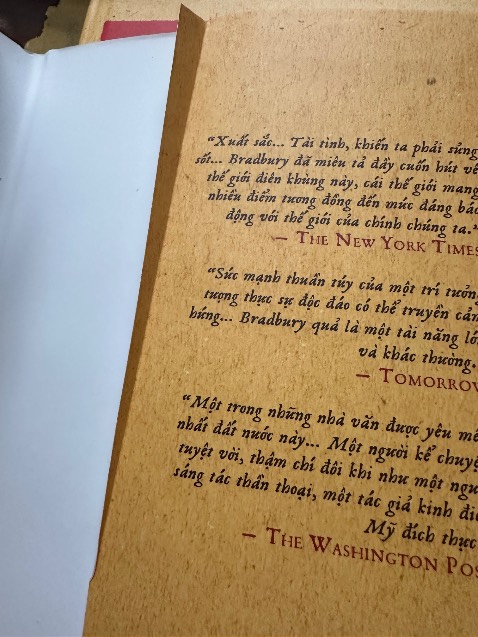 “Xuất sắc... Tài tình, khiến ta phải sửng
sốt... Bradbury đã miêu tả đầy cuốn hút về
thế giới điên khùng này, cái thế giới mang
nhiều điểm tương đồng đến mức đáng báo
động với thế giới của chính chúng ta.”
— THE NEW YORK TIMES
“Sức mạnh thuần túy của một trí tưởng
tượng thực sự độc đáo có thể truyền cảm
hứng... Bradbury quả là một tài năng lớn
và khác thường.
— TOMORROW
“Một trong những nhà văn được yêu mế
nhất đất nước này... Một người kể chuyệ
tuyệt vời, thậm chí đôi khi như một ngư
sáng tác thần thoại, một tác giả kinh điể
Mỹ đích thực
— THE WASHINGTON POS